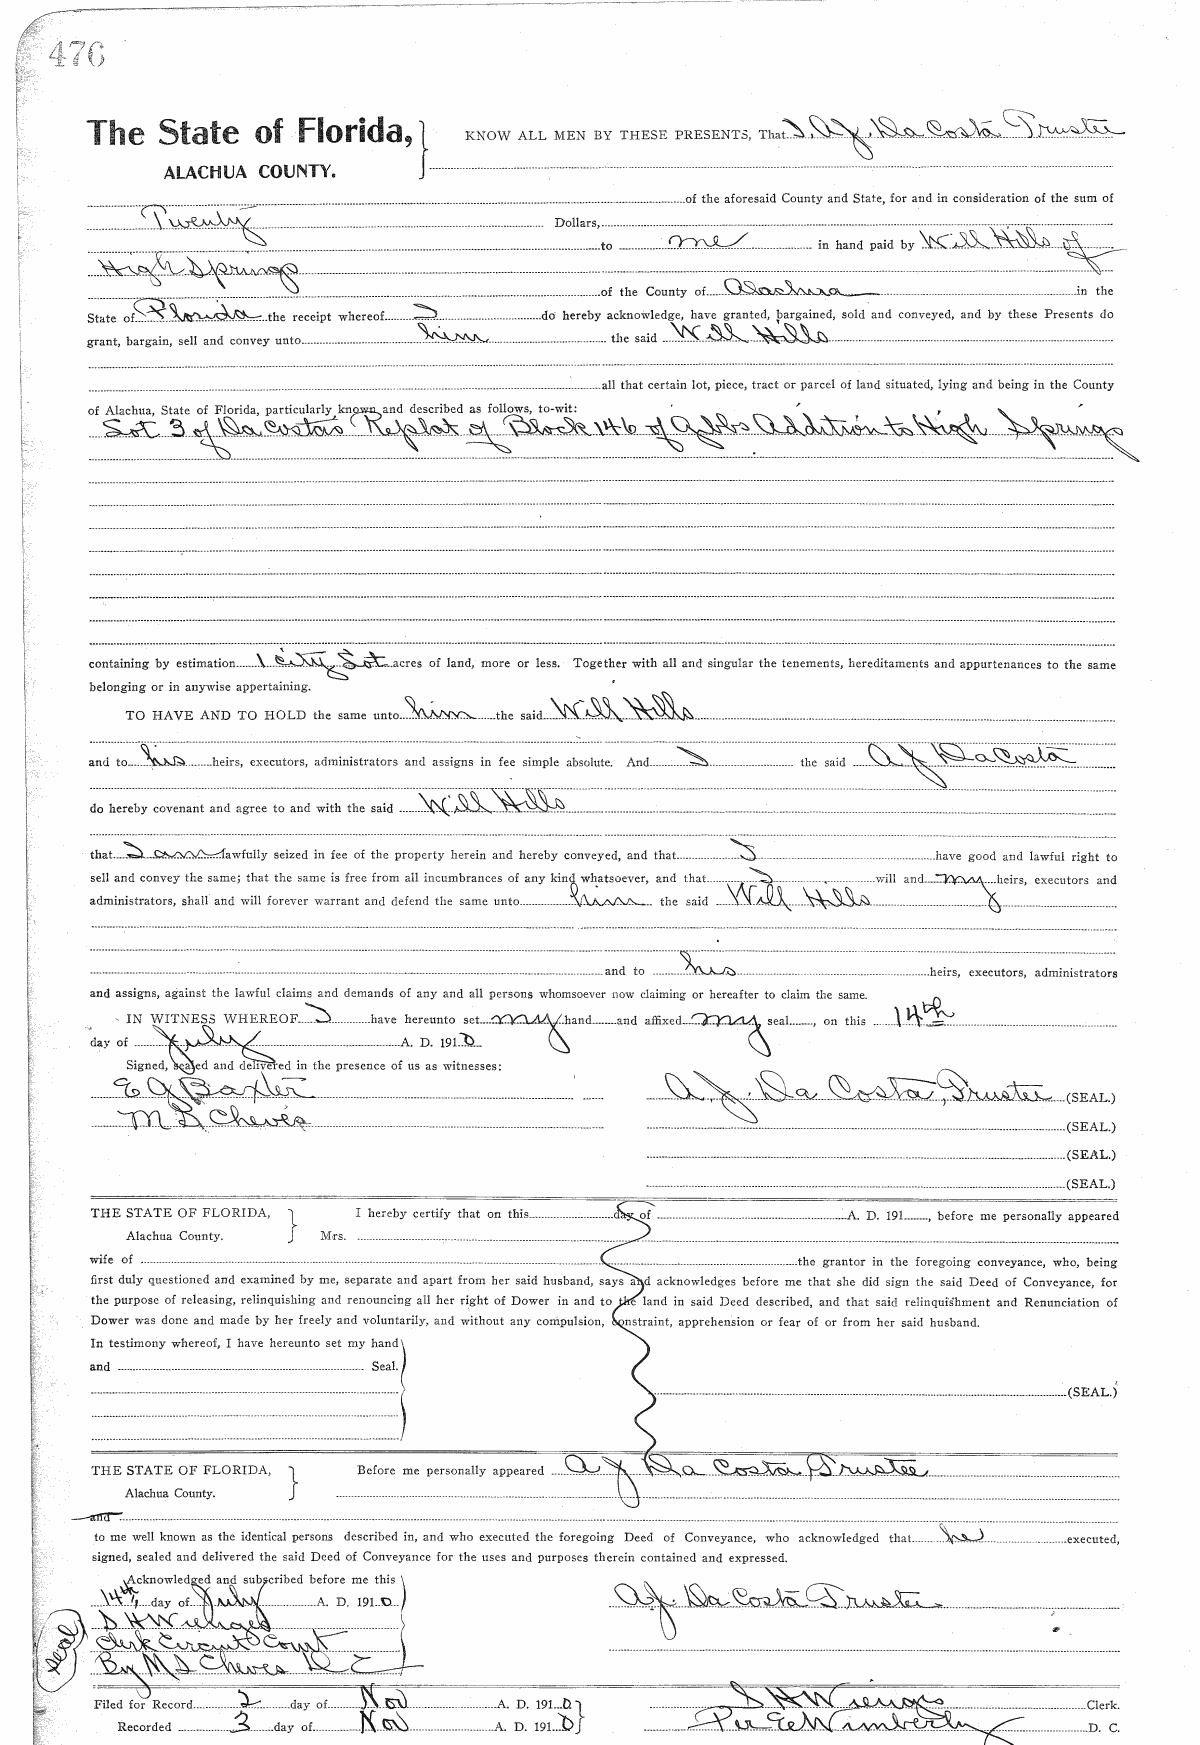 476
The State of Florida,
ALACHUA COUNTY.
KNOW ALL MEN BY THESE PRESENTS, That I, A.J. Da Costa Trustee
of the aforesaid County and State, for and in consideration of the sum of
Twenty Dollars,
to me in hand paid by Will Hills of
High Springs
of the County of Alachua in the
State of Florida the receipt whereof I do hereby acknowledge, have granted, bargained, sold and conveyed, and by these Presents do
grant, bargain, sell and convey unto him the said Will Hills
all that certain lot, piece, tract or parcel of land situated, lying and being in the County
of Alachua, State of Florida, particularly known and described as follows, to-wit:
Lot 3 of Da Costa's Replat of Block 146 of Gibbs Addition to High Springs
containing by estimation 1 city Lot acres of land, more or less. Together with all and singular the tenements, hereditaments and appurtenances to the same
belonging or in anywise appertaining.
TO HAVE AND TO HOLD the same unto him the said Will Hills
and to his heirs, executors, administrators and assigns in fee simple absolute. And I the said A J Da Costa
do hereby covenant and agree to and with the said Will Hills
that I am lawfully seized in fee of the property herein and hereby conveyed, and that I have good and lawful right to
sell and convey the same; that the same is free from all incumbrances of any kind whatsoever, and that I will and my heirs, executors and
administrators, shall and will forever warrant and defend the same unto him the said Will Hills
and to his heirs, executors, administrators
and assigns, against the lawful claims and demands of any and all persons whomsoever now claiming or hereafter to claim the same.
IN WITNESS WHEREOF I have hereunto set my hand and affixed my seal, on this 14th
day of July A. D. 1910
Signed, sealed and delivered in the presence of us as witnesses:
E G Baxter
A. J. Da Costa, Trustee (SEAL.)
M S Cheves
(SEAL.)
(SEAL.)
(SEAL.)
THE STATE OF FLORIDA,
Alachua County.
I hereby certify that on this day of A. D. 191, before me personally appeared
Mrs.
wife of the grantor in the foregoing conveyance, who, being
first duly questioned and examined by me, separate and apart from her said husband, says and acknowledges before me that she did sign the said Deed of Conveyance, for
the purpose of releasing, relinquishing and renouncing all her right of Dower in and to the land in said Deed described, and that said relinquishment and Renunciation of
Dower was done and made by her freely and voluntarily, and without any compulsion, constraint, apprehension or fear of or from her said husband.
In testimony whereof, I have hereunto set my hand
and Seal.
(SEAL.)
THE STATE OF FLORIDA,
Alachua County.
Before me personally appeared A J Da Costa, Trustee
and
to me well known as the identical persons described in, and who executed the foregoing Deed of Conveyance, who acknowledged that he executed,
signed, sealed and delivered the said Deed of Conveyance for the uses and purposes therein contained and expressed.
Acknowledged and subscribed before me this
14th, day of July A. D. 1910
A.J. Da Costa Trustee
S H Wienges
Clerk Circuit Court
By M S Cheves D C
seal
Filed for Record 2 day of Nov A. D. 1910
S H Wienges Clerk.
Recorded 3 day of Nov A. D. 1910
Per E E Wimberly D. C.